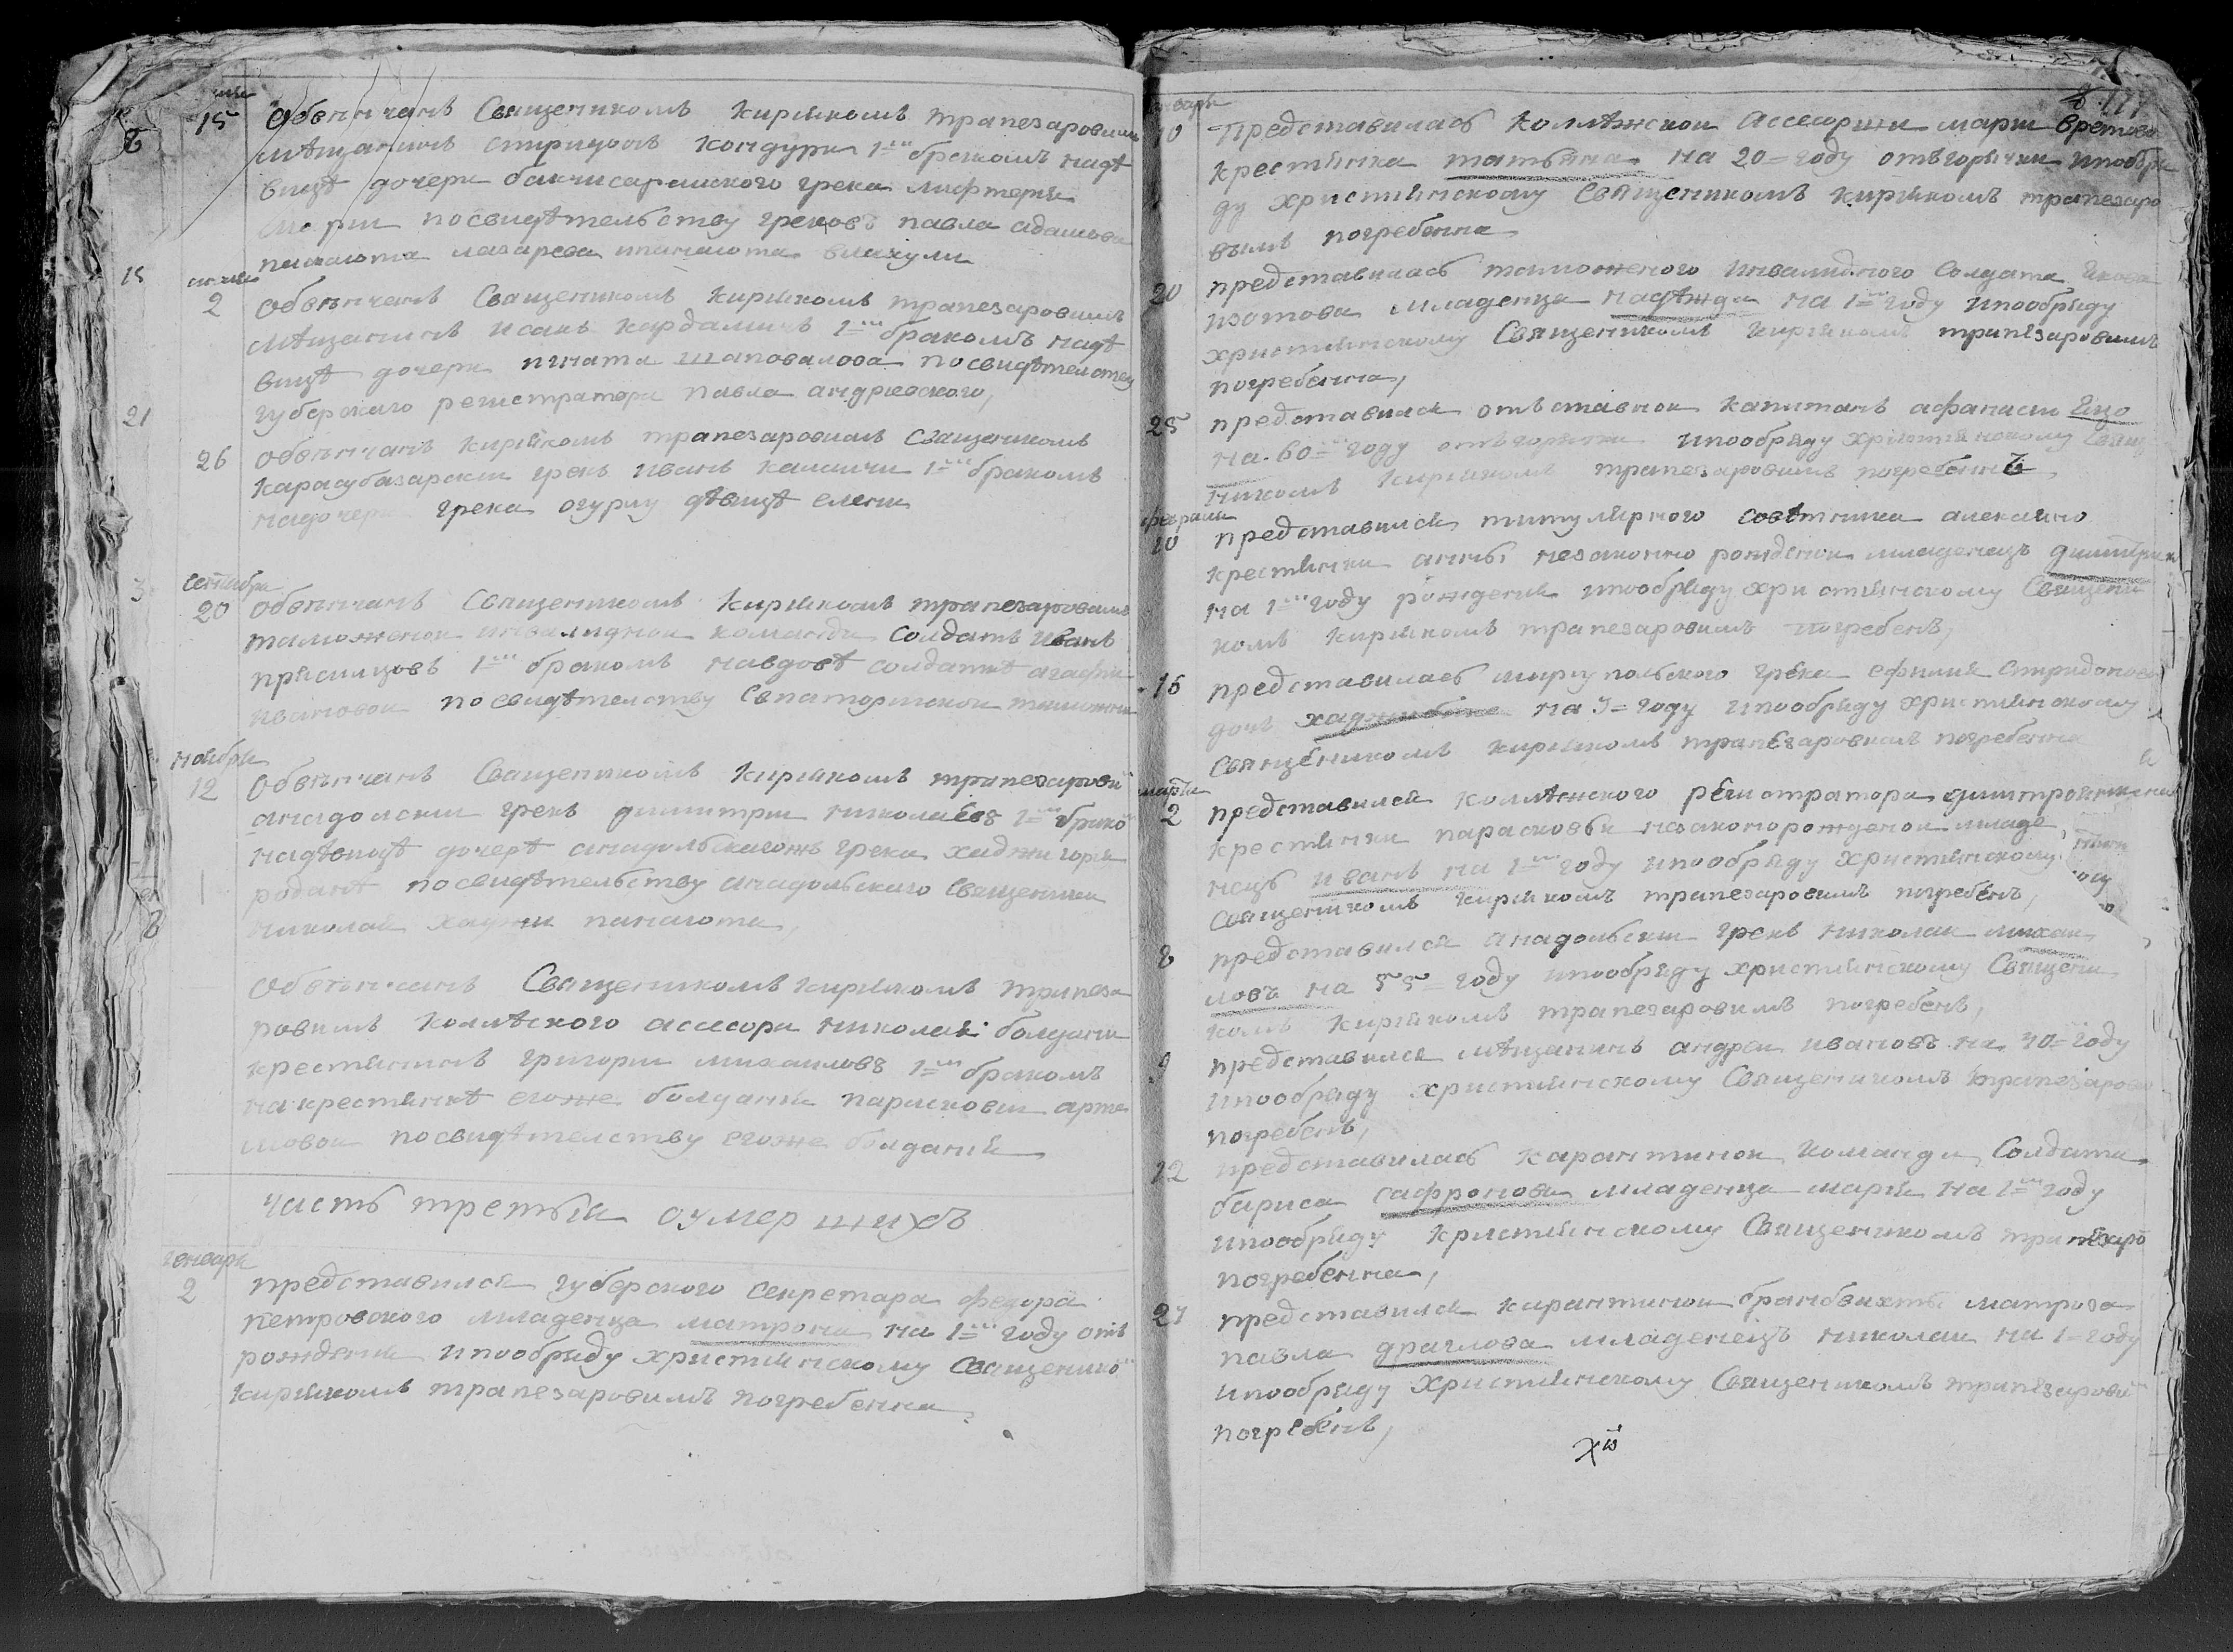 15 Обвенчанъ Священикомъ кириякомъ трапезаровимъ
мѣщанинъ кондури 1мъ бракомъ надѣ
вицѣ дочери бакчисарайского грека
марии посвидѣтельству грековъ павла адамова
панаиота лазарева ипанаиота
2 Обвѣнчанъ Священикомъ кириякомъ трапезаровимъ
мѣщанинъ исакъ 1мъ бракомъ надѣ
вицѣ дочери игната шаповалова посвидѣтелству
губерскаго регистратора павла андриевского,
26 обвѣнчанъ кириякомъ трапезаровимъ священикомъ
карасубазарски грекъ иванъ 1мъ бракомъ
надочери грека огурлу дѣвицѣ елени
Сентября
20 обвѣнчанъ Священикомъ кириякомъ трапезаровимъ
таможенои инвалиднои команди Солдатъ иванъ
1мъ бракомъ навдовѣ солдаткѣ агафии
ивановои посвидѣтелству Евпаторискои таможни
ноября
12 Обвѣнчанъ Священикомъ кирияком трапезарови
анадолски грекъ димитри николаевъ 1мъ брако
надѣвицѣ дочерѣ анадольскагожъ грека хаджи горги
посвидѣтельству анадольскаго Священика
николая хаджи панаиота,
Обвѣнчанъ Священикомъ кирияком трапеза
ровимъ колѣского асесора николая болдани
крестянинъ григори михаиловъ 1мъ бракомъ
накрестянкѣ егоже болдания парасковии арте
мовои посвидѣтелству егоже болдания
часть третья оумершихъ
генваря
2 представился губерского секретара федора
петровского младенца матрона на 1мъ году отъ
рождения ипообряду християнскому Священико
кирияком трапезаровимъ погребенна
генваря
10 Представилась колѣжскои Асесорши марии
крестянка татьяна на 20=году отъгорячки ипообря
ду християнскому Священикомъ кирияком трапезаро
вымъ погребенна
20 представилась таможеного инвалидного Солдата
изотова младенца надѣжда на 1мъ году ипообряду
християнскому Священикомъ кирияком трапезаровимъ
погребенна,
25 представился отъставнои капитанъ афанаси
на 60=году отъгорячки ипообряду християнскому Свящ
никомъ кирияком трапезаровимъ погребеннъ
февраля
10 представился титулярного совѣтника
крестянки анны незаконно рожденои младенецъ димитрии
на 1мъ году рождения ипообряду християнскому Священи
комъ кирияком трапезаровимъ погребенъ,
16 представилась мариупольского грека
дочь на году ипообряду християнскому
Священикомъ кирияком трапезаровимъ погребенна
марта
2 представился колѣжского регистратора
крестянки парасковьи незаконорожденои младе
нецъ иванъ на 1мъ году ипообряду християнскому
священикомъ кирияком трапезаровимъ погребенъ,
8 представился анадольски грекъ николаи михаи
ловъ на 55=году ипообряду християнскому Священи
комъ кирияком трапезаровимъ погребенъ,
9 представился мѣщанинъ андреи ивановъ на 40=году
ипообряду християнскому Священикомъ трапезарови
погребенъ,
12 представилась карантинои команди Солдата
бариса сафронова младенца мария на 1мъ году
ипообряду християнскому Священикомъ трапезаро
погребенна,
27 представился карантинои брандвахты матроза
павла драглова младенецъ николаи на 1=году
ипообряду християнскому Священикомъ трапезарови
погребенъ,